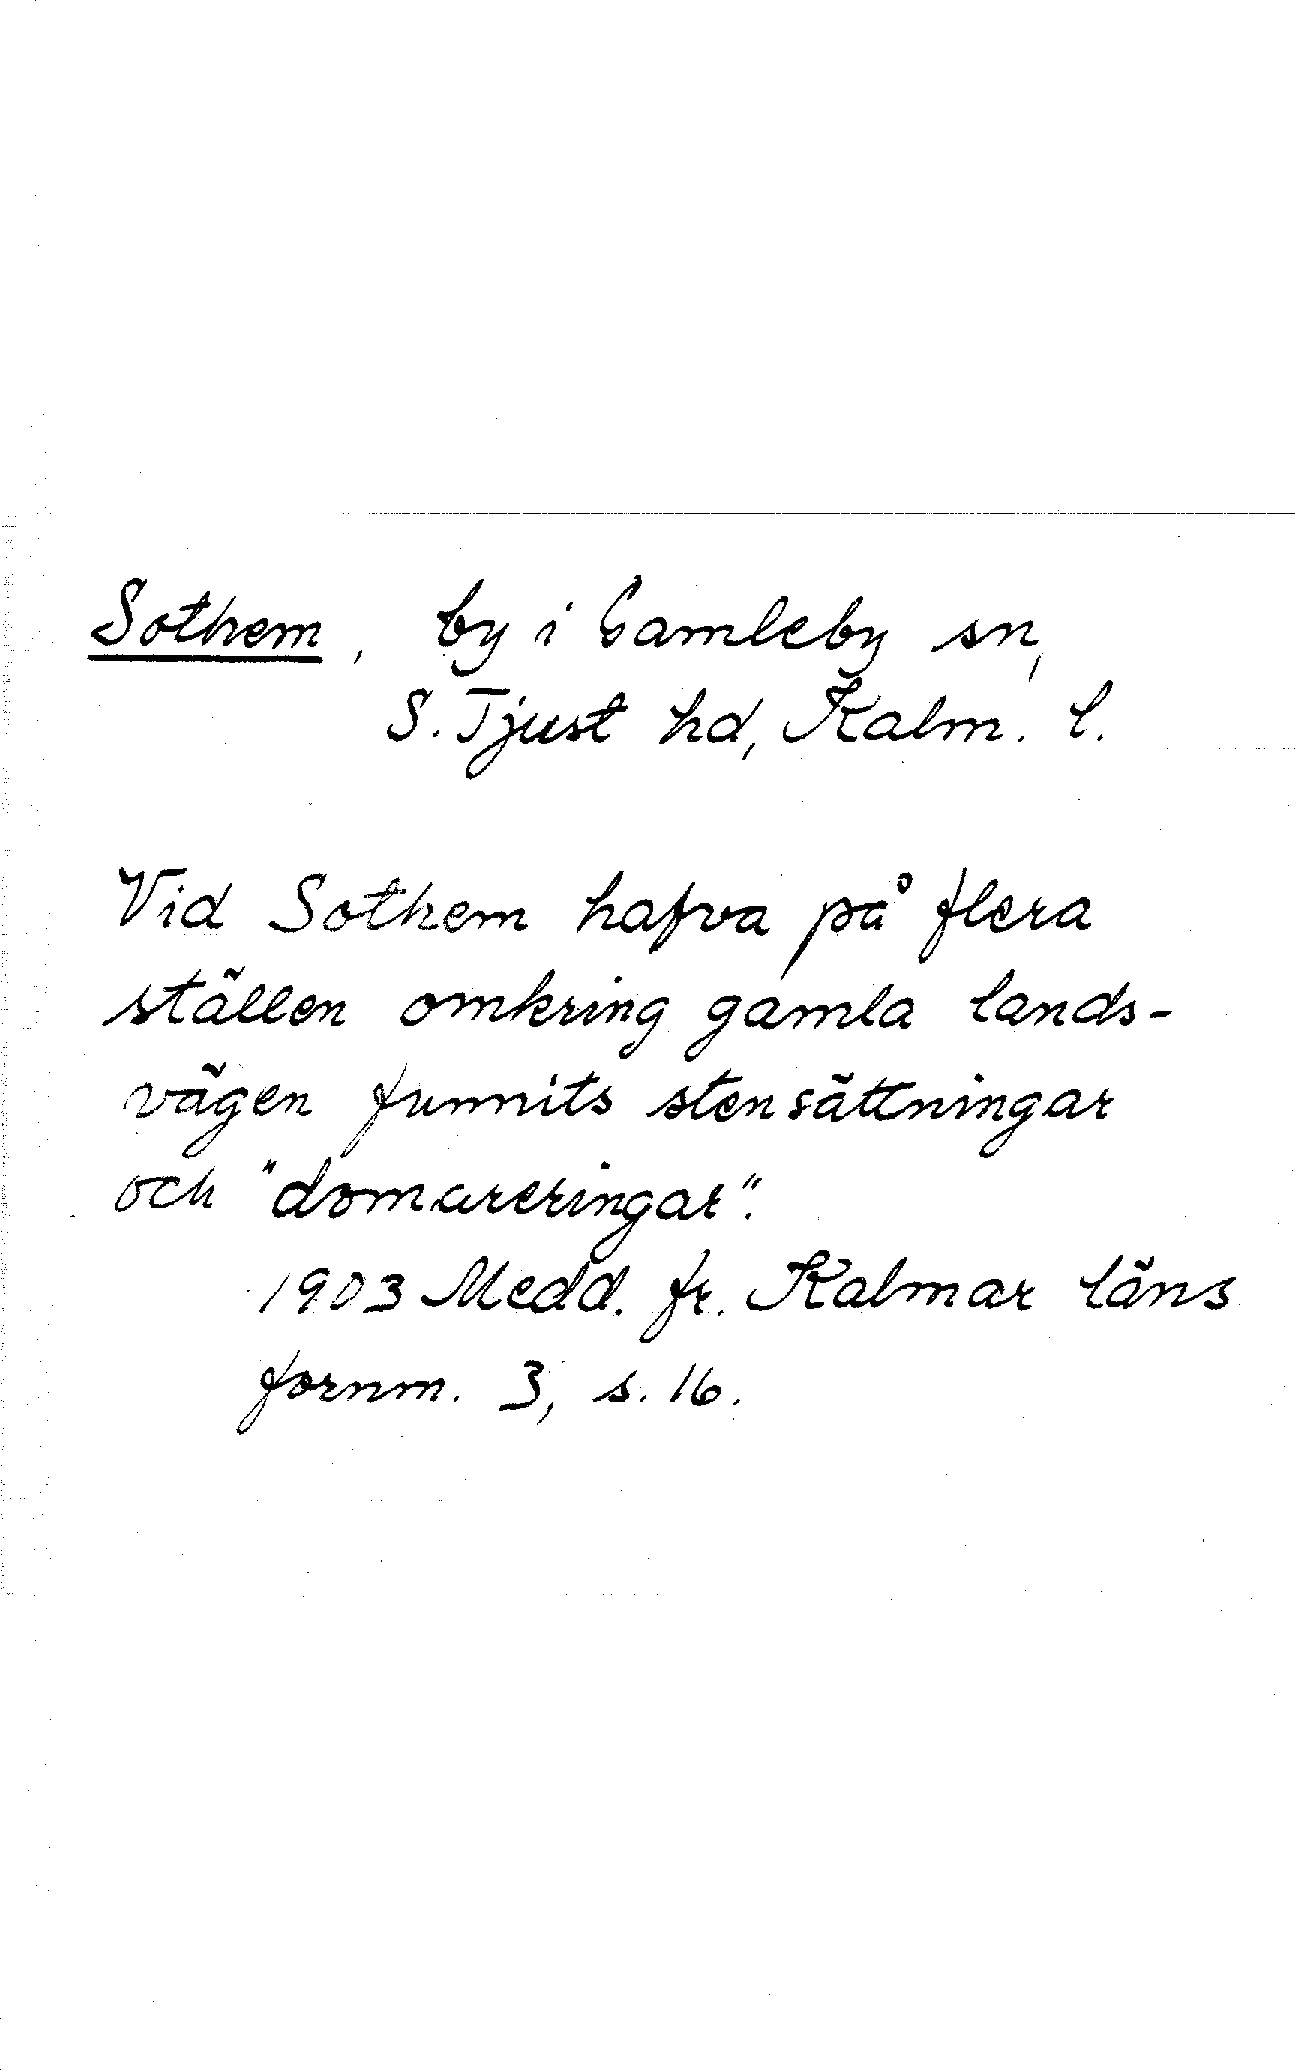 Sothem, by i Gamleby sn,
S. Tjust hd, Kalm. l.
Vid Sothem hafva på flera
ställen omkring gamla lands-
vägen funnits stensättningar
och "domareringar".
1903 Medd. fr. Kalmar läns
fornm. 3, s. 16.